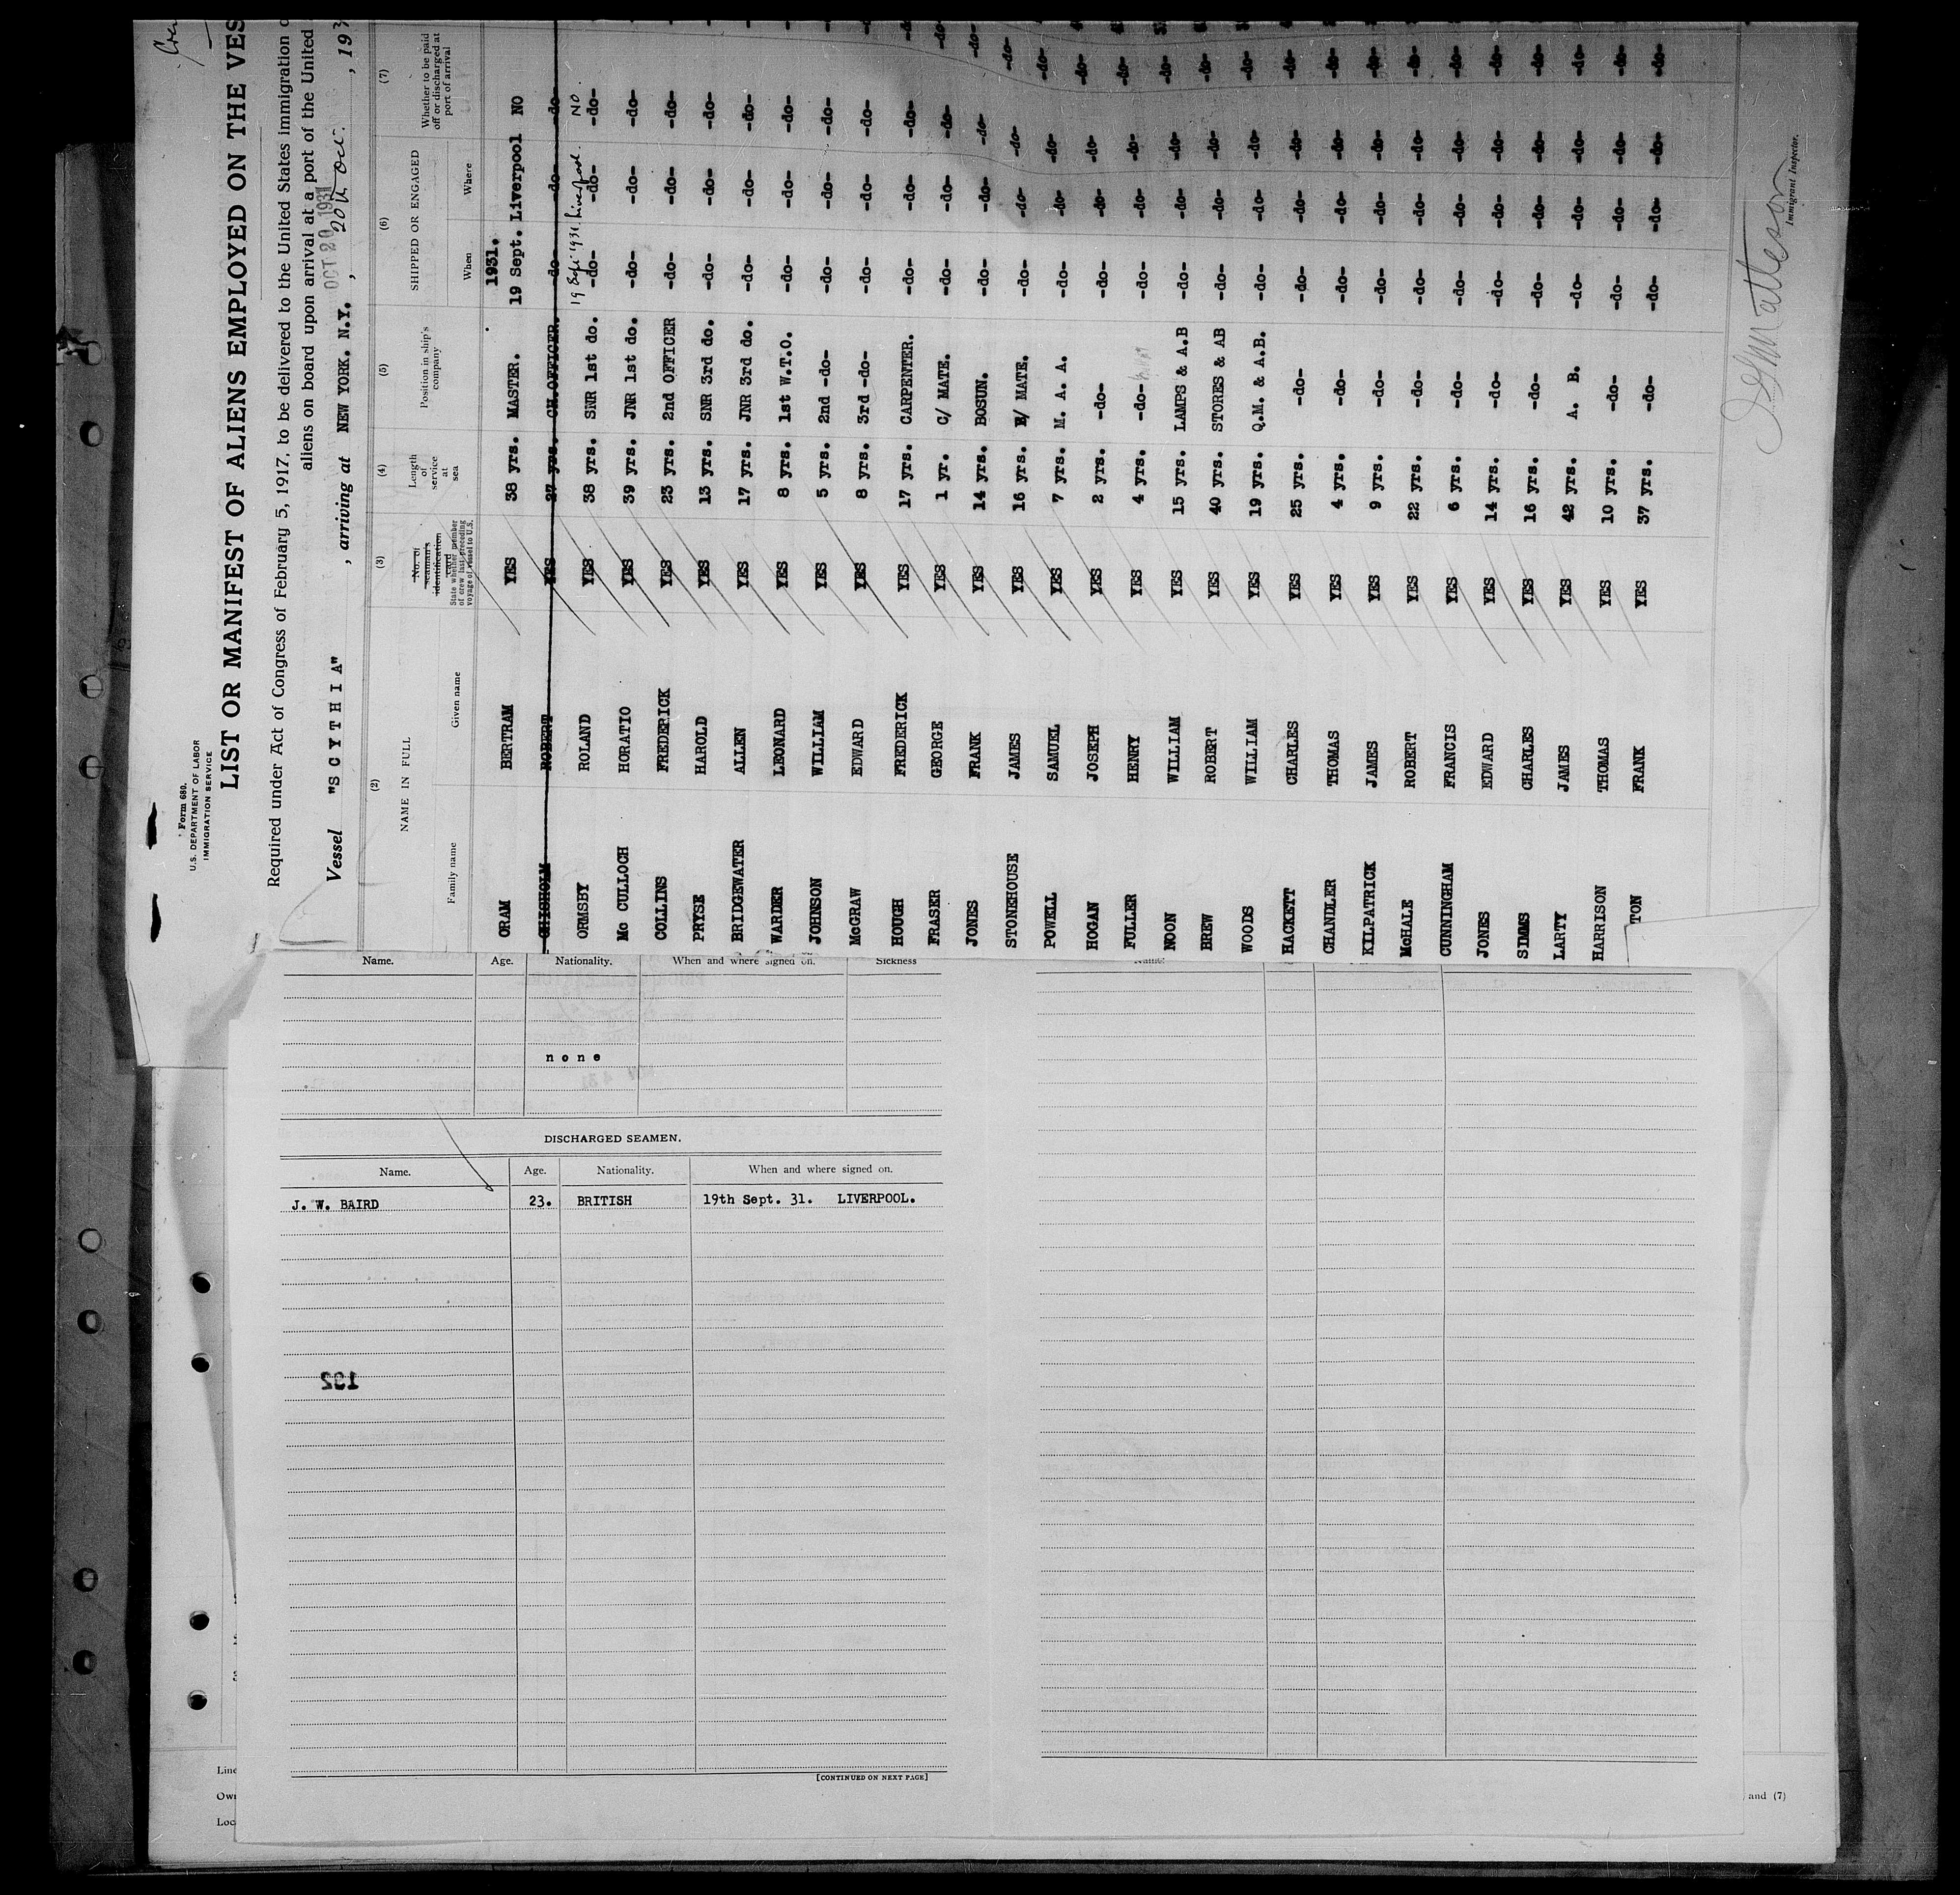 Form 680.
U.S. DEPARTMENT OF LABOR
IMMIGRATION SERVICE
LIST OR MANIFEST OF ALIENS EMPLOYED ON THE VES
Required under Act of Congress of February 5, 1917, to be delivered to the United States immigration
aliens on board upon arrival at a port of the United
OCT 20 1931
Vessel "S C Y T H I A" , arriving at NEW YORK. N.Y. , 20th Oct. , 193
(2) (3) (4) (5) (6) (7)
NAME IN FULL No. of seaman's identification card State whether member of crew last preceding voyage of vessel to U.S. Length of service at sea Position in ship's company SHIPPED OR ENGAGED Whether to be paid off or discharged at port of arrival
Family name Given name When Where
1931.
ORAM BERTRAM YES 38 yrs. MASTER. 19 Sept. Liverpool NO
CHISHOLM ROBERT YES 27 yrs. CH.OFFICER. -do- -do- -do-
19 Sept 1931 Liverpool. NO.
ORMSBY ROLAND YES 38 yrs. SNR 1st do. -do- -do- -do-
Mc CULLOCH HORATIO YES 39 yrs. JNR 1st do. -do- -do- -do-
COLLINS FREDERICK YES 23 yrs. 2nd OFFICER -do- -do- -do-
PRYSE HAROLD YES 13 yrs. SNR 3rd do. -do- -do- -do-
BRIDGEWATER ALLEN YES 17 yrs. JNR 3rd do. -do- -do- -do-
WARDER LEONARD YES 8 yrs. 1st W.T.O. -do- -do- -do-
JOHNSON WILLIAM YES 5 yrs. 2nd -do- -do- -do- -do-
McGRAW EDWARD YES 8 yrs. 3rd -do- -do- -do- -do-
HOUGH FREDERICK YES 17 yrs. CARPENTER. -do- -do- -do- -do-
FRASER GEORGE YES 1 yr. C/ MATE. -do- -do- -do- -do-
JONES FRANK YES 14 yrs. BOSUN. -do- -do- -do- -do-
STONEHOUSE JAMES YES 16 yrs. B/ MATE. -do- -do- -do- -do-
POWELL SAMUEL YES 7 yrs. M. A. A. -do- -do- -do- -do-
HOGAN JOSEPH YES 2 yrs. -do- -do- -do- -do- -do-
FULLER HENRY YES 4 yrs. -do- -do- -do- -do- -do-
NOON WILLIAM YES 15 yrs. LAMPS & A.B -do- -do- -do- -do-
BREW ROBERT YES 40 yrs. STORES & AB -do- -do- -do- -do-
WOODS WILLIAM YES 19 yrs. Q.M. & A.B. -do- -do- -do- -do-
HACKETT CHARLES YES 25 yrs. -do- -do- -do- -do- -do-
CHANDLER THOMAS YES 4 yrs. -do- -do- -do- -do- -do-
KILPATRICK JAMES YES 9 yrs. -do- -do- -do- -do- -do-
McHALE ROBERT YES 22 yrs. -do- -do- -do- -do- -do-
CUNNINGHAM FRANCIS YES 6 yrs. -do- -do- -do- -do- -do-
JONES EDWARD YES 14 yrs. -do- -do- -do- -do- -do-
SIMMS CHARLES YES 16 yrs. -do- -do- -do- -do- -do-
LARTY JAMES YES 42 yrs. A. B. -do- -do- -do- -do-
HARRISON THOMAS YES 10 yrs. -do- -do- -do- -do- -do-
TON FRANK YES 37 yrs. -do- -do- -do- -do- -do-
Immigrant Inspector.
Name. Age. Nationality. When and where signed on. Sickness
none
DISCHARGED SEAMEN.
Name. Age. Nationality. When and where signed on.
J. W. BAIRD 23. BRITISH 19th Sept. 31. LIVERPOOL.
132
[CONTINUED ON NEXT PAGE]
Name.
Line
Own
Loc
and (7)